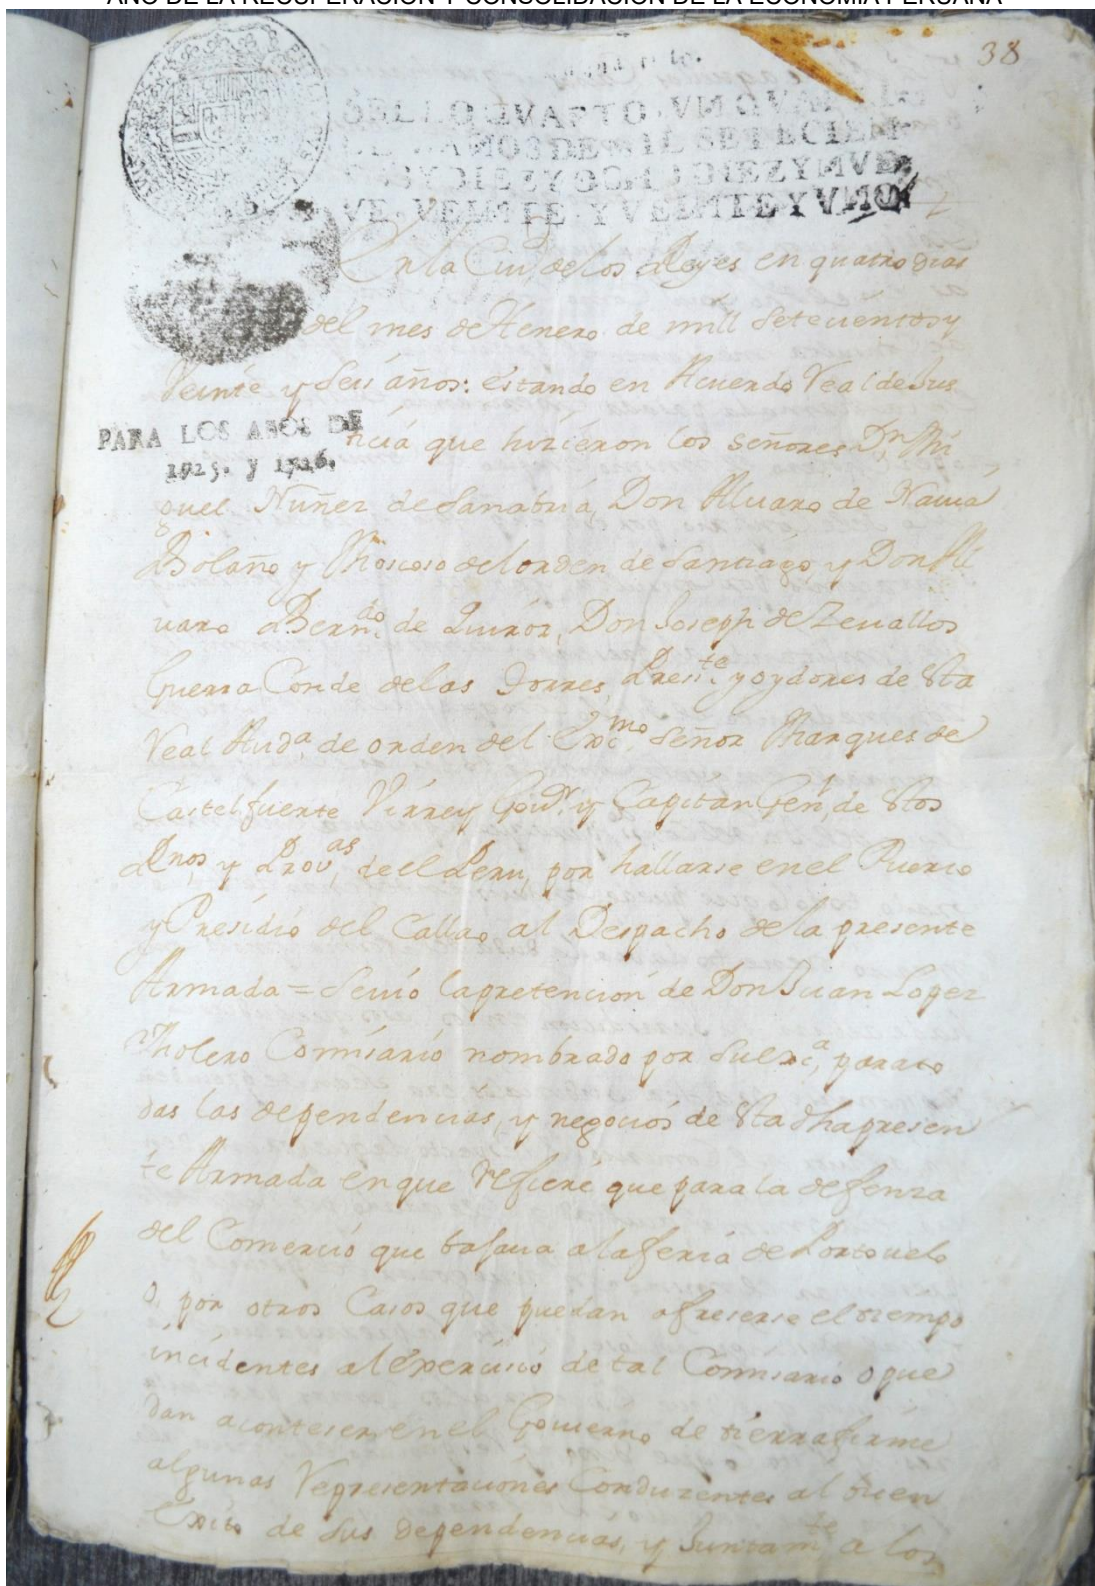 AÑO DE LA RECUPERACIÓN Y CONSOLIDACIÓN DE LA ECONOMÍA PERUANA
38
SELLO QVARTO, VN QVARTILLO
AÑOS DE MIL SETECIEN
TOS Y DIEZ Y OCHO, DIEZ Y NVE
VE, VEINTE, Y VEINTE Y VNO
En la Ciud. de los Reyes en quatro dias
del mes de Henero de mill setecientos y
Veinte y seis años: estando en Acuerdo Real de Jus
PARA LOS AÑOS DE
1725. y 1726.
ticia que hizieron los señores Dn. Mi
guel Nuñez de Sanabria, Don Alvaro de Navia
Bolaño y Moscoso del orden de Santiago, y Don Al
varo Berndo. de Quiros, Don Joseph de Zevallos
Guerra Conde de las Torres, Presite. y oydores de Sta
Real Auda. de orden del Excmo. Señor Marques de
Castelfuerte Virrey Govr. y Capitan Genl. de Stos
Rnos. y Provas. de el Peru, por hallarse en el Puerto
y Presidio del Callao al Despacho de la presente
Armada = Se vio la pretencion de Don Juan Lopez
Molero Comisario nombrado por su exca. para to
das las dependencias, y negocios de Sta dha presen
te Armada en que refiere que para la defenza
del Comercio que bajava a la feria de Portovelo
o, por otros Casos que puedan ofreserse el tiempo
incidentes al exercisio de tal Comisario o pue
dan aconteser en el Govierno de tierra firme
algunas Representaciones Conduzentes al buen
Exito de sus dependencias, y Juntamte. a los